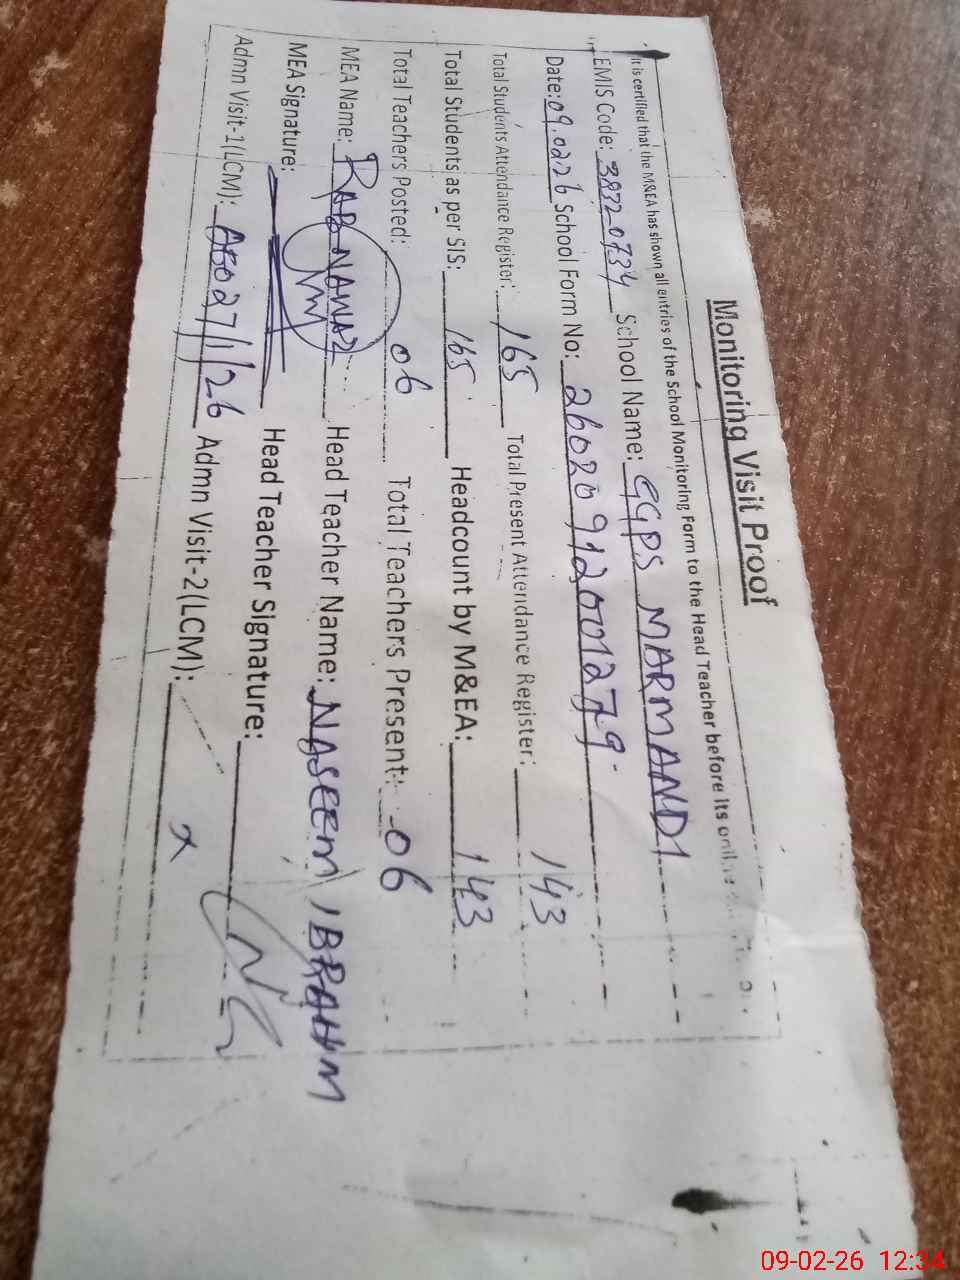 Monitoring Visit Proof
It is certified that the M&EA has shown all entries of the School Monitoring Form to the Head Teacher before its
EMIS Code: 38320734 School Name: GGPS MARMANDI
Date: 09.02.26 School Form No: 26020912001279
Total Students Attendance Register: 165 Total Present Attendance Register: 143
Total Students as per SIS: 165 Headcount by M&EA: 143
Total Teachers Posted: 06 Total Teachers Present: 06
MEA Name: RAB NAWAZ Head Teacher Name: NASEEM IBRAHIM
MEA Signature: Head Teacher Signature:
Admn Visit-1(LCM): 27/1/26 Admn Visit-2(LCM): x
09-02-26 12:34